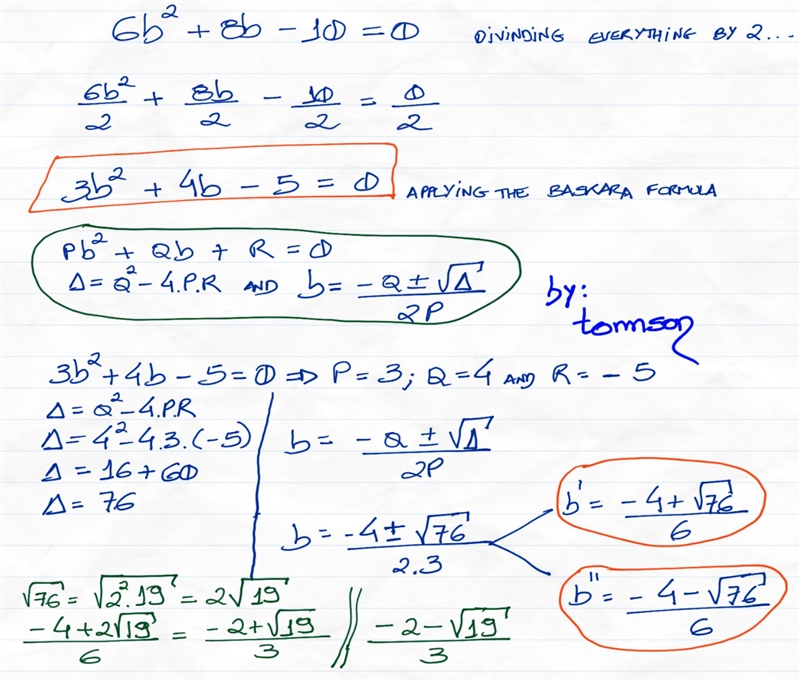 6b² + 8b - 10 = 0 DIVINDING EVERYTHING BY 2...
6b²/2 + 8b/2 - 10/2 = 0/2
3b² + 4b - 5 = 0 APPLYING THE BASKARA FORMULA
Pb² + Qb + R = 0
Δ = Q² - 4.P.R AND b = (-Q ± √Δ)/2P
by:
tormson
3b² + 4b - 5 = 0 ⇒ P = 3; Q = 4 AND R = - 5
Δ = Q² - 4.P.R
Δ = 4² - 4.3.(-5)
Δ = 16 + 60
Δ = 76
b = (-Q ± √Δ)/2P
b = (-4 ± √76)/2.3
b' = (-4 + √76)/6
b'' = (-4 - √76)/6
√76 = √2².19 = 2√19
(-4 + 2√19)/6 = (-2 + √19)/3 // (-2 - √19)/3